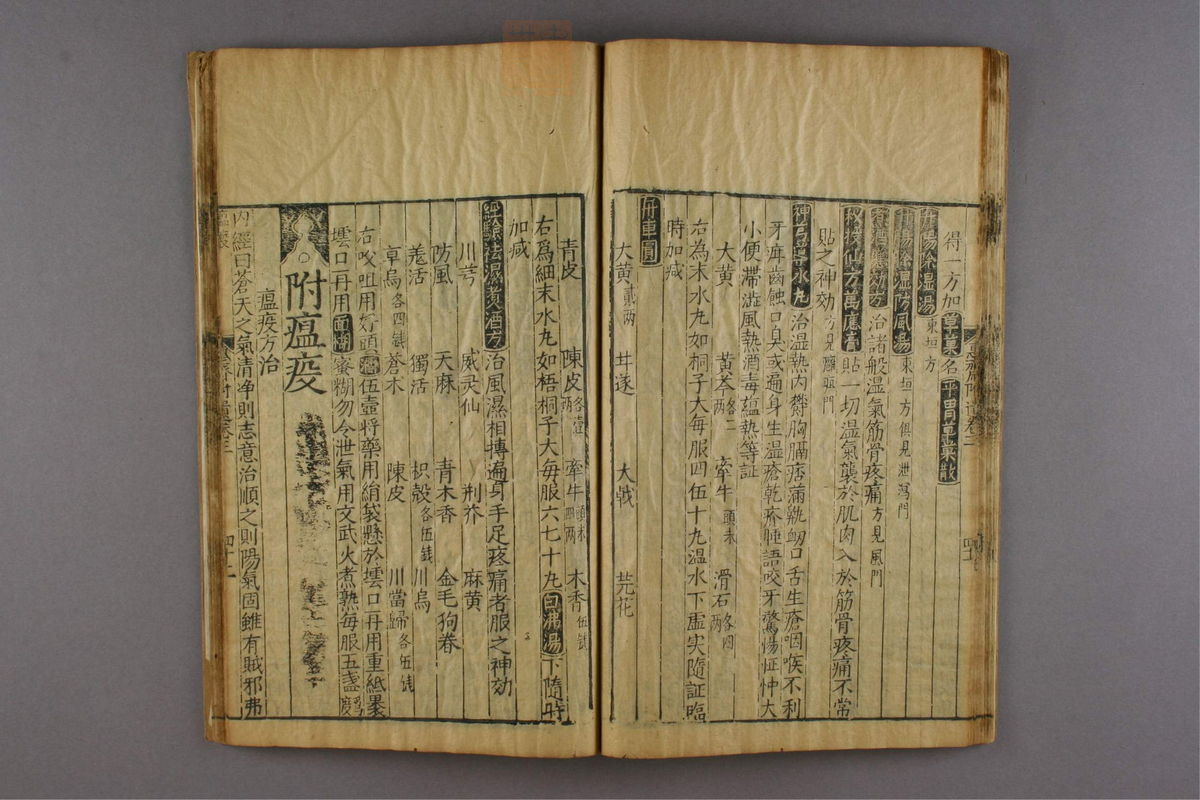 得一方加草菓名平胃草菓散
升陽除湿湯東垣方
升陽除湿防風湯東垣方俱見泄瀉門
治諸般湿氣筋骨疼痛方見風門
秘傳仙方萬應膏貼一切湿氣襲於肌肉入於筋骨疼痛不常
貼之神効方見癰疽門
神芎導水丸治湿熱内欝胸膈痞滿埶㕧口舌生瘡咽喉不利
牙疳齒蝕口臭或遍身生湿瘡乾疥睡語咬牙驚惕怔忡大
小便滯澁風熱酒毒藴熱等証
大黃 黃芩各二两 牽牛頭末 滑石各四两
右為末水丸如桐子大每服四伍十丸温水下虛实隨証臨
時加减
舟車圓
大黃貳两 甘遂 大戟 芫花
青皮 陳皮各壹两 牽牛頭末四两 木香伍錢
右爲細末水丸如梧桐子大每服六七十丸白沸湯下隨時
加减
經驗祛濕煑酒方治風濕相摶遍身手足疼痛者服之神効
川芎 威灵仙 荆芥 麻黄
防風 天麻 青木香 金毛狗脊
羗活 獨活 枳殼各伍錢 川烏
草烏各四錢 蒼术 陳皮 川當歸各伍錢
右㕮咀用好頭酒伍壺將藥用絹袋懸於壜口再用重紙墨
壜口再用面糊蜜糊勿令泄氣用文武火煮熟每服五盞爲度
附瘟疫
瘟疫方治
内經曰蒼天之氣清净則志意治順之則陽氣固雖有賊邪弗
四十二